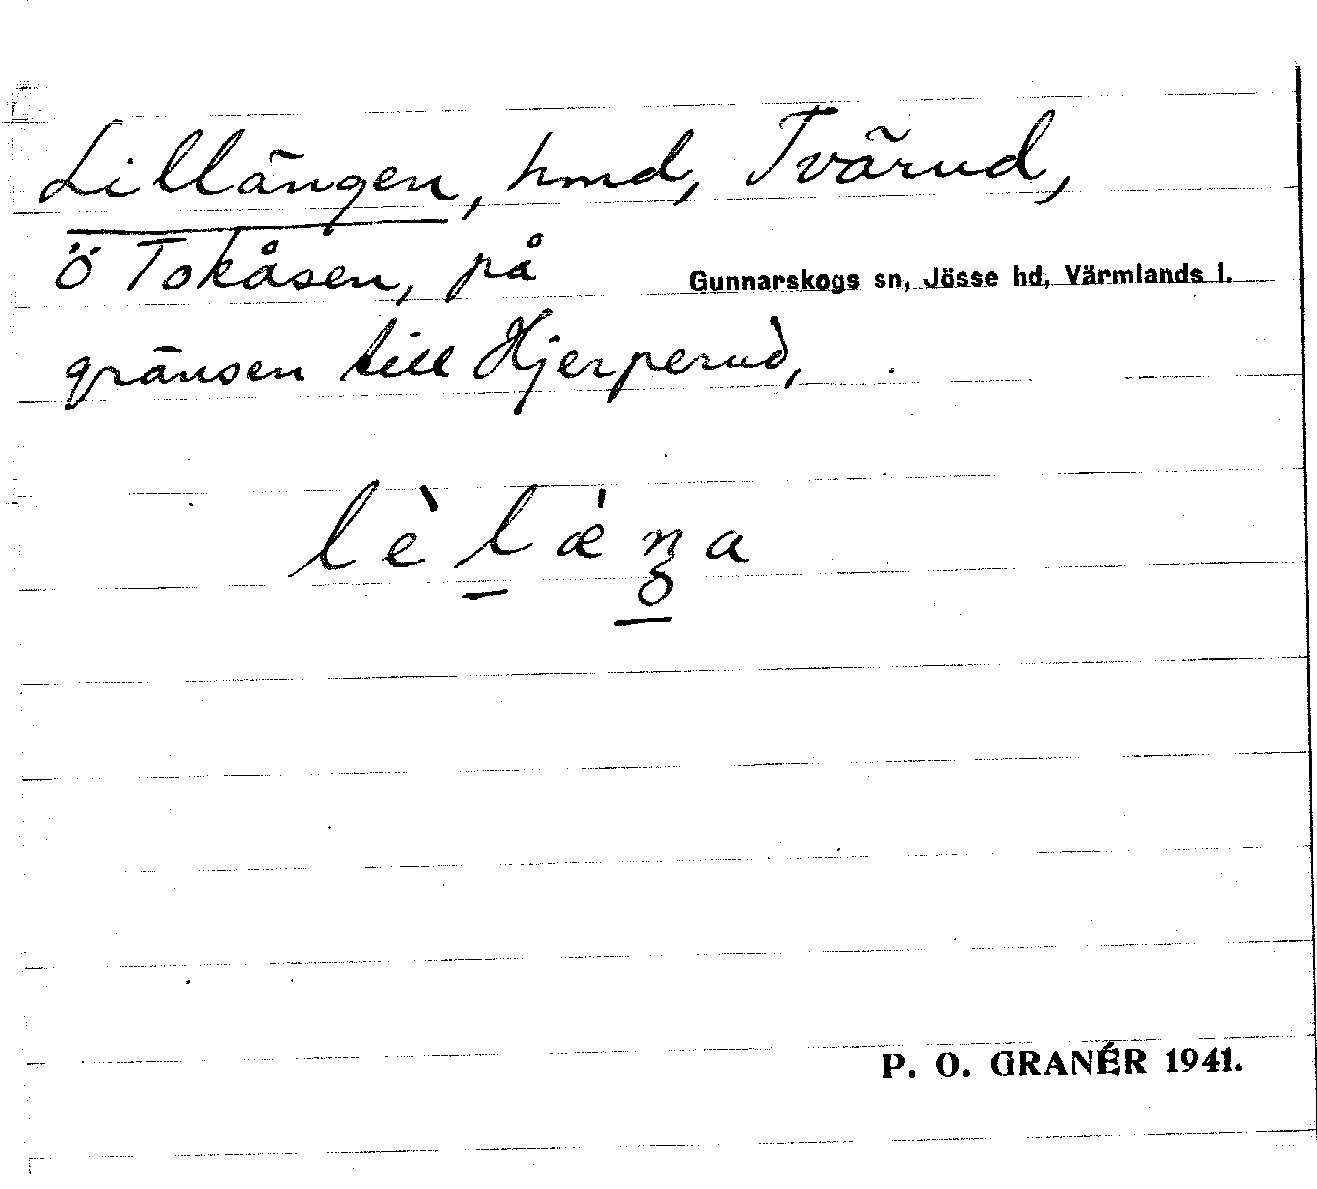 Lillängen, hmd, Tvärud,
ö Tokåsen, på
Gunnarskogs sn, Jösse hd, Värmlands l.
gränsen till Hjerperud,
lèlǽŋa
P. O. GRANÉR 1941.